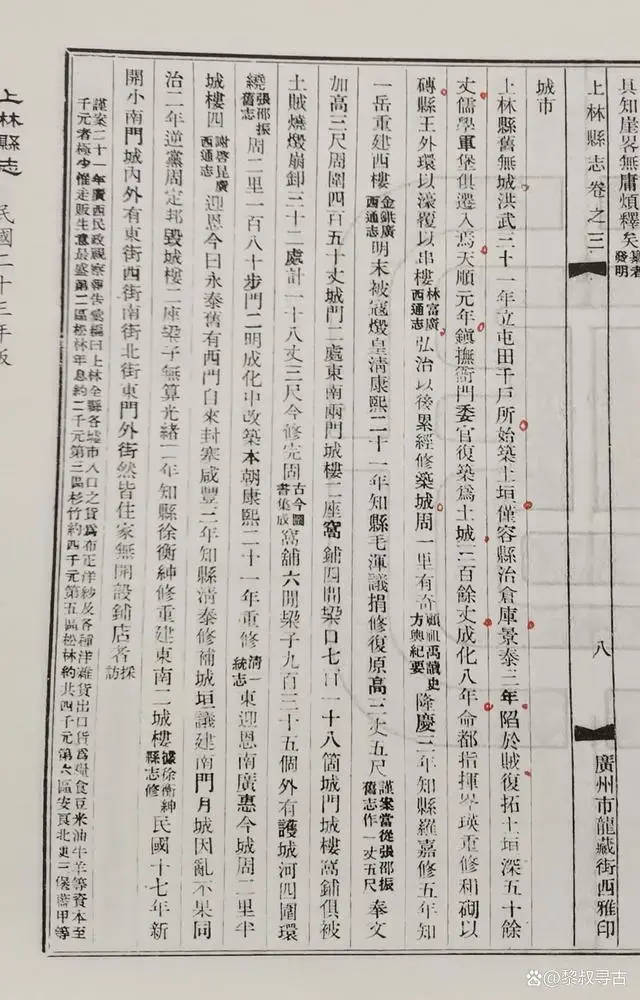 具知崖畧無庸煩釋矣纂者發明
上林縣志卷之三
八
廣州市龍藏街西雅印
城市
上林縣舊無城洪武二十一年立屯田千戶所始築土垣僅容縣治倉庫景泰三年陷於賊復拓土垣深五十餘
丈儒學軍堡俱遷入焉天順元年鎮撫衙門委官復築爲土城三百餘丈成化八年命都指揮畀瑛重修和砌以
磚縣王外環以濠覆以串樓林富廣西通志弘治以後累經修築城周一里有奇顧祖禹讀史方輿紀要隆慶三年知縣羅嘉修五年知
一岳重建西樓金鉷廣西通志明末被寇燬皇淸康熙二十一年知縣毛渾議捐修復原高三丈五尺謹案當從張邵振舊志作一丈五尺奉文
加高三尺周圍四百五十丈城門二處東南兩門城樓二座窩鋪四間梁口七百一十八箇城門城樓窩鋪俱被
土賊燒燬崩卸三十二處計一十八丈三尺今修完固古今圖書集成窩舖六間梁子九百三十五個外有護城河四圍環
繞張邵振舊志周二里一百八十步門二明成化中改築本朝康熙二十一年重修淸一統志東迎恩南廣惠今城周二里半
城樓四謝啓昆廣西通志迎恩今曰永泰舊有西門自來封塞咸豐三年知縣淸泰修補城垣議建南門月城因亂不果同
治二年逆黨周定邦毀城樓二座梁子無算光緒二年知縣徐衡紳修重建東南二城樓據徐衡紳縣志修民國十七年新
開小南門城內外有東街西街南街北街東門外街然皆住家無開設鋪店者採訪
謹案二十一年廣西民政視察報告彙編曰上林全縣各墟市入口之貨爲布疋洋紗及各種洋雜貨出口貨爲糧食豆米油牛羊等資本至
千元者極少惟走販生意最盛第二區松林年息約二千元第三區杉竹約四千元第五區松林約共四千元第六區安良北更三堡
上林縣志
民國二十三年版
黎叔寻古